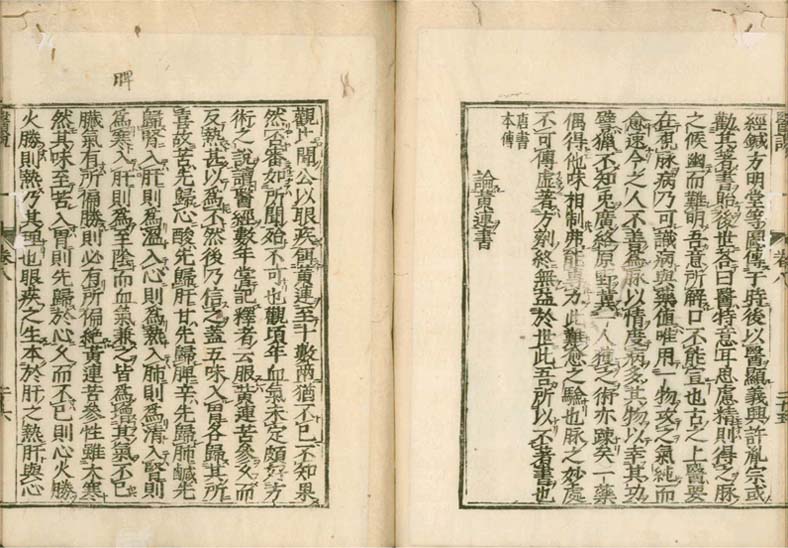 醫說
卷八
二十五
經鍼方明堂等圖傳于時後以醫顯義興許胤宗或
勸其著書貽後世荅曰醫特意耳思慮精則得之脉
之候幽而難明吾意所解口不能宣也古之上醫要
在視脉病乃可識病與藥值唯用一物攻之氣純而
愈速今之人不善爲脉以情度病多其物以幸其功
譬獵不知兎廣絡原野冀一人獲之術亦疎矣一藥
偶得他味相制弗能專力此難愈之驗也脉之妙處
不可傳虛著方劑終無益於世此吾所以不著書也
唐書
本傳
論黃連書
脾
觀比聞公以眼疾餌黃連至十數兩猶不已不知果
然否審如所聞殆不可也觀頃年血氣未定頗好方
術之說讀醫經數年嘗記釋者云服黃連苦參久而
反熱甚以爲不然後乃信之蓋五味入胃各歸其所
喜故苦先歸心酸先歸肝甘先歸脾辛先歸肺鹹先
歸腎入肝則爲溫入心則爲熱入肺則爲清入腎則
爲寒入肝則爲至陰而血氣兼之皆爲增其氣不已
臟氣有所偏勝則必有所偏絶黃連苦參性雖大寒
然其味至苦入胃則先歸於心久而不已則心火勝
火勝則熱乃其理也眼疾之生本於肝之熱肝與心
醫說
卷八
二十六